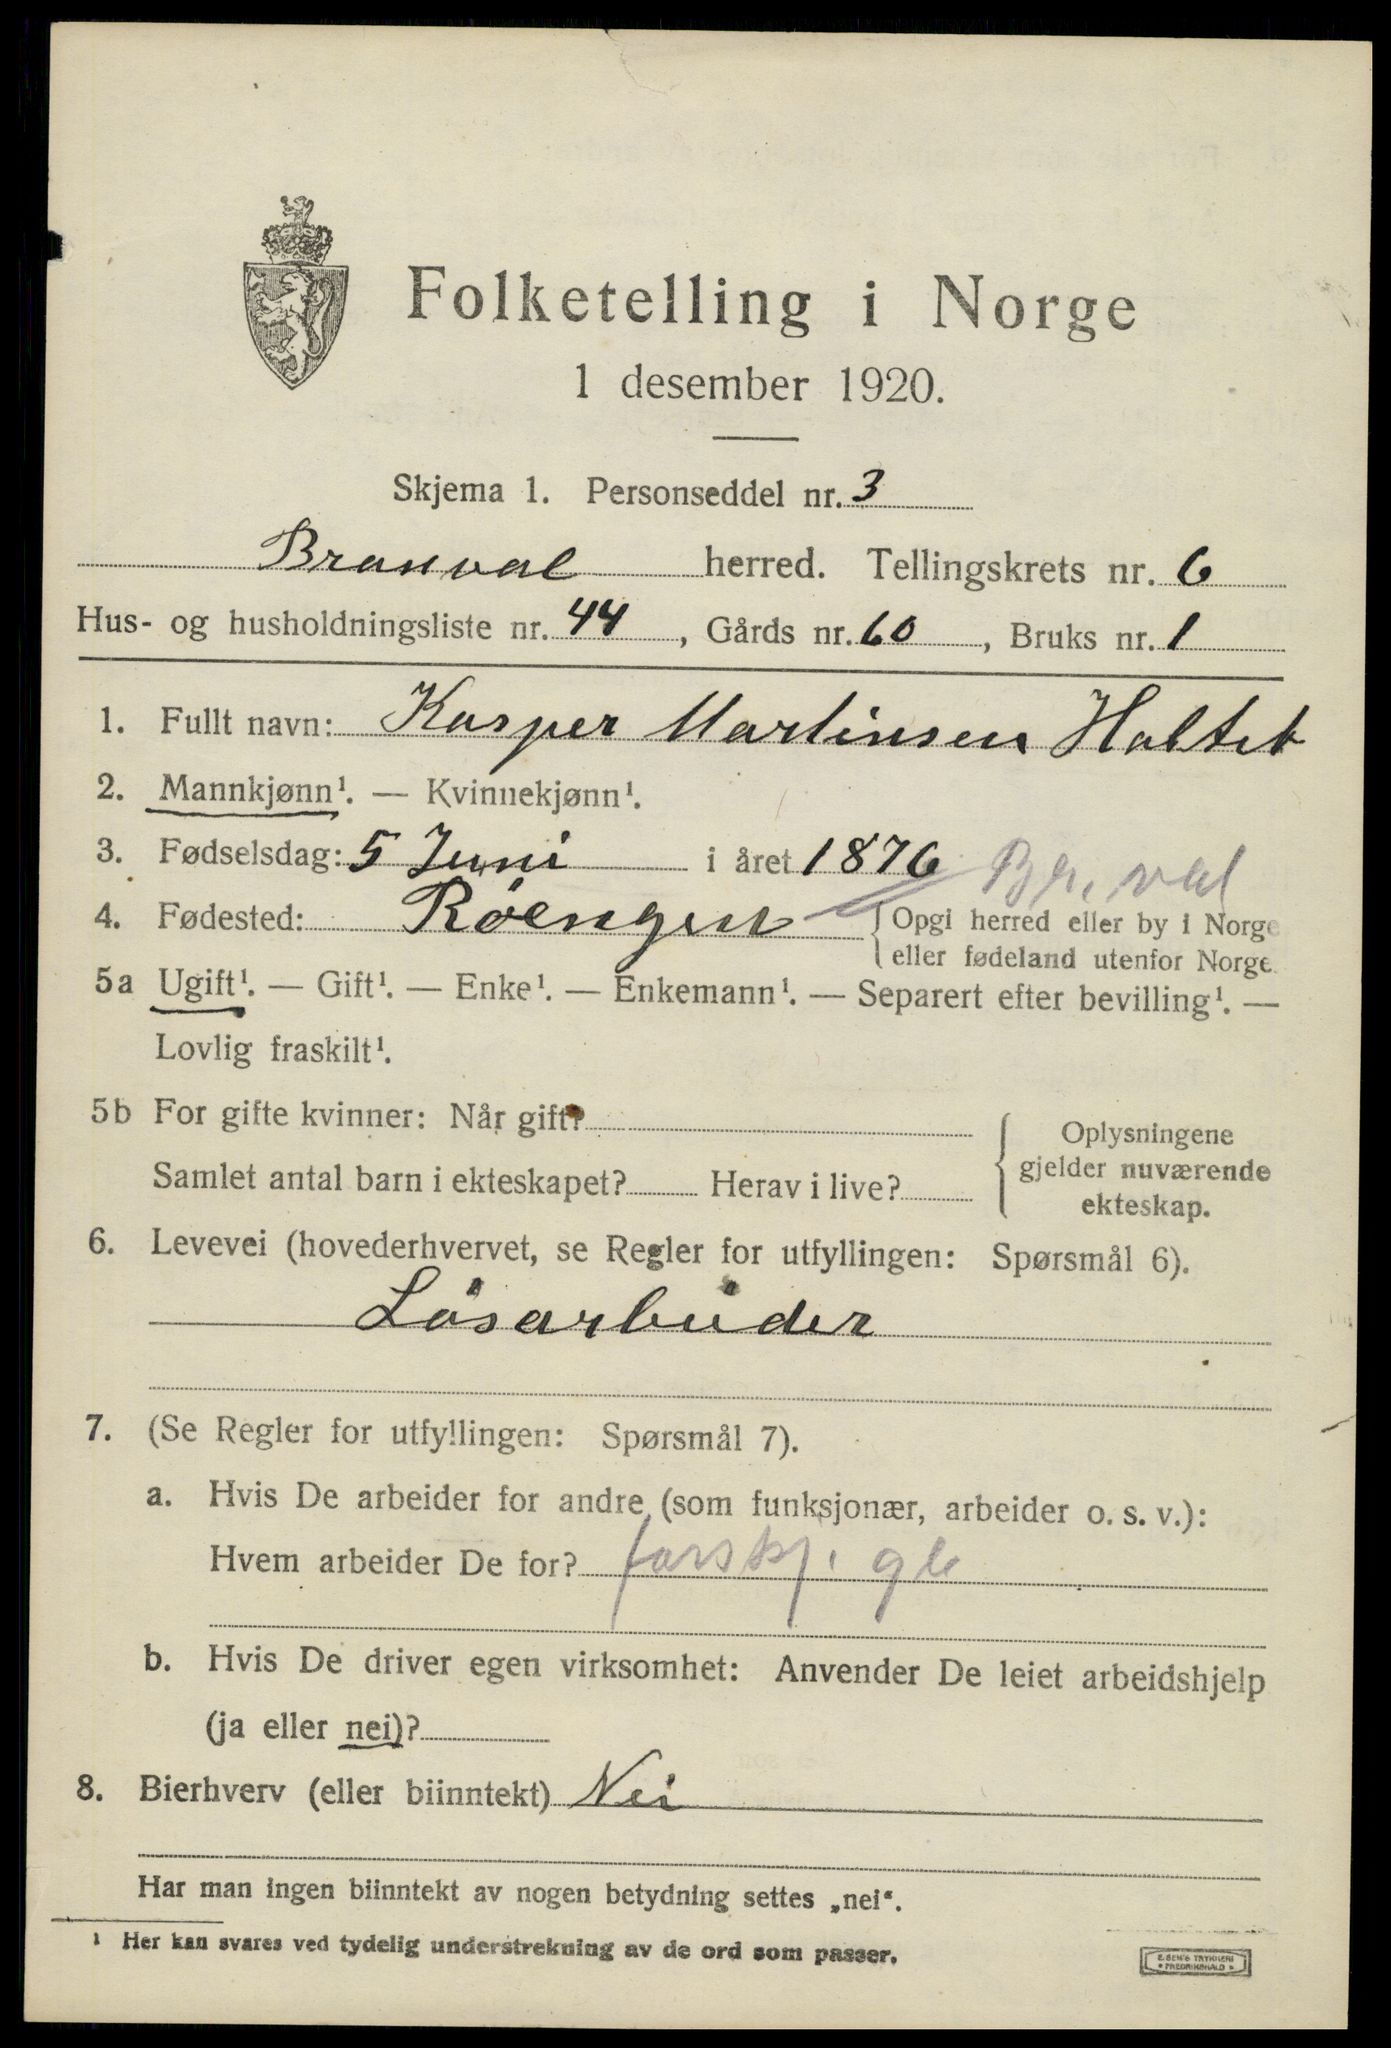 Folketelling i Norge
1 desember 1920.
Skjema 1. Personseddel nr. 3
Branval herred. Tellingskrets nr. 6
Hus- og husholdningsliste nr. 44, Gårds nr. 60, Bruks nr. 1
1. Fullt navn: Kasper Martinsen Holtet
2. Mannkjønn¹. — Kvinnekjønn¹.
3. Fødselsdag: 5 Juni i året 1876 Br. val
4. Fødested: Röengen {Opgi herred eller by i Norge
eller fødeland utenfor Norge.
5a Ugift¹. — Gift¹. — Enke¹. — Enkemann¹. — Separert efter bevilling¹. —
Lovlig fraskilt¹.
5b For gifte kvinner: Når gift?
Samlet antal barn i ekteskapet? Herav i live?
Oplysningene
gjelder nuværende
ekteskap.
6. Levevei (hovederhvervet, se Regler for utfyllingen: Spørsmål 6).
Lösarbuder
7. (Se Regler for utfyllingen: Spørsmål 7).
a. Hvis De arbeider for andre (som funksjonær, arbeider o. s. v.):
Hvem arbeider De for? forskj.
b. Hvis De driver egen virksomhet: Anvender De leiet arbeidshjelp
(ja eller nei)?
8. Bierhverv (eller biinntekt) Nei
Har man ingen biinntekt av nogen betydning settes „nei“.
¹ Her kan svares ved tydelig understrekning av de ord som passer.
E. SEM'S TRYKKERI
• FREDRIKSHALD •